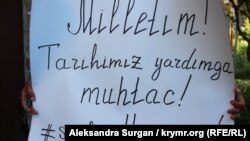 Milletim!
Tarihimiz yardımga
muhtac!
Aleksandra Surgan / krymr.org (RFE/RL)